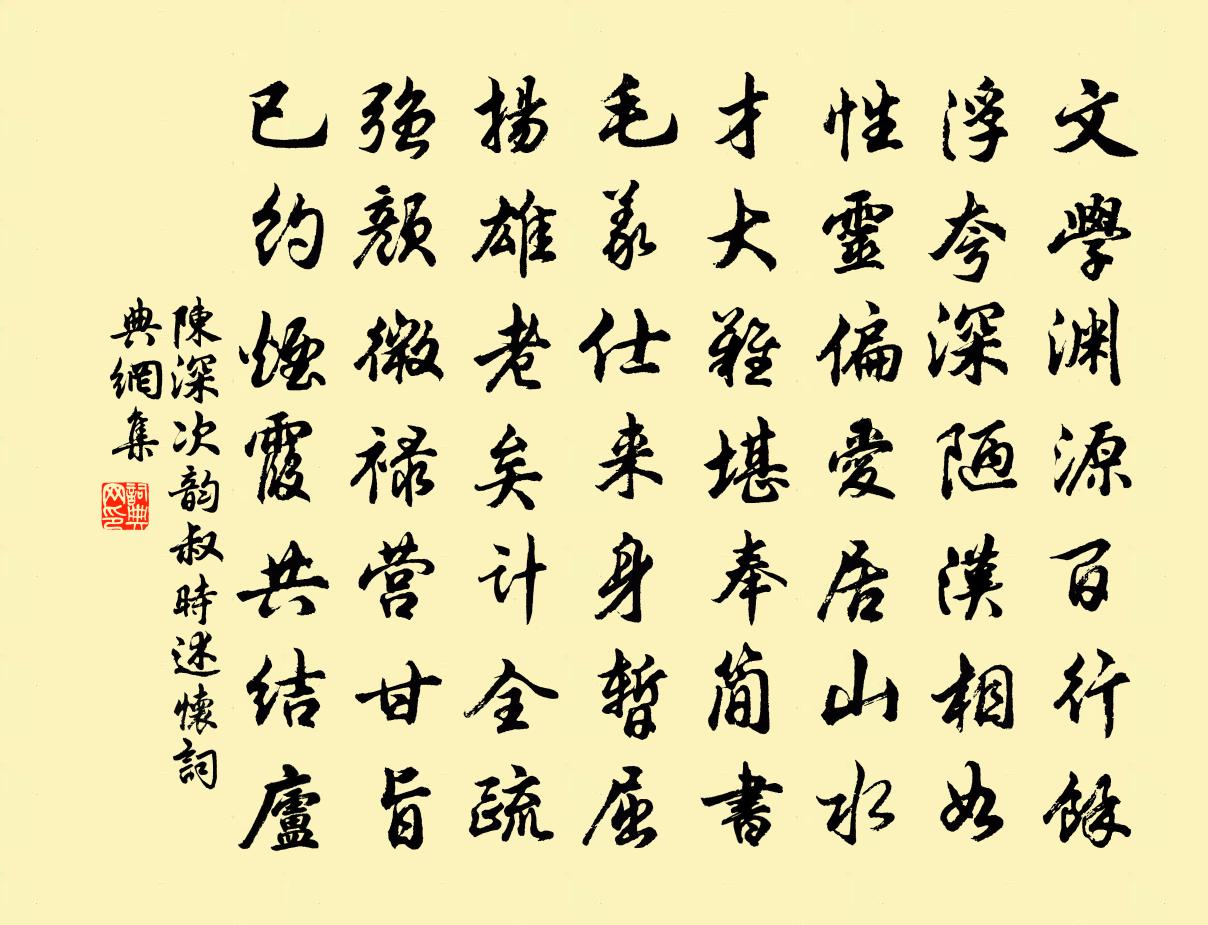 文學渊源百行餘
浮夸深陋漢相如
性靈偏愛居山水
才大難堪奉简書
毛義仕来身暫屈
揚雄老矣计全疏
強颜微禄营甘旨
已约煙霞共结廬
陳深次韵叔時述懷詞
典網集
詞典网印